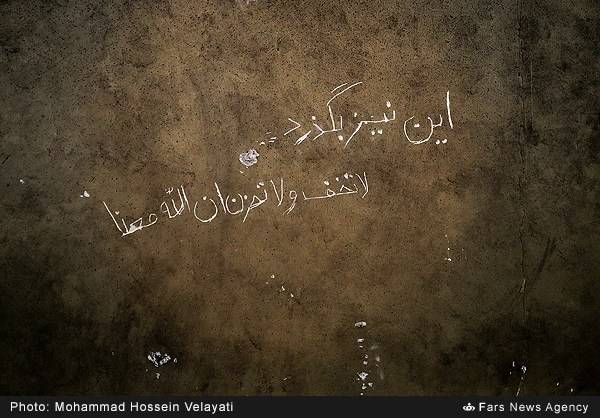 این نیز بگذرد...
لا تخف و لا تحزن ان الله معنا
Photo: Mohammad Hossein Velayati
Fars News Agency